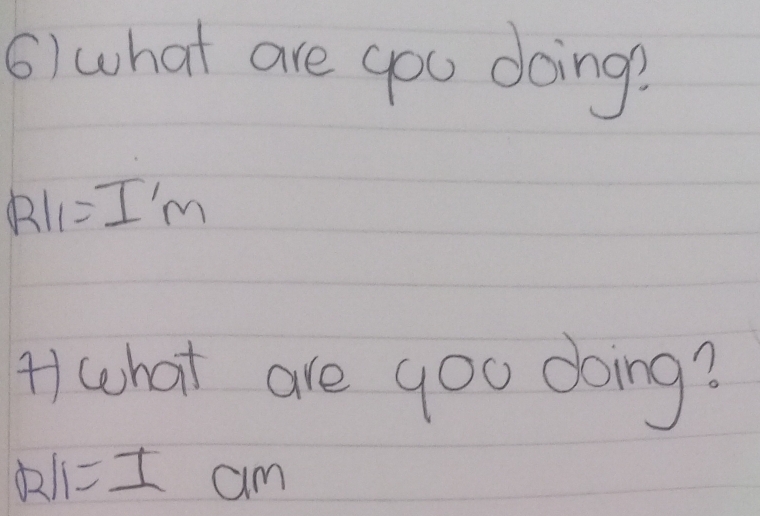 6) What are you doing?
R//= I'm
7) What are you doing?
R//= I am